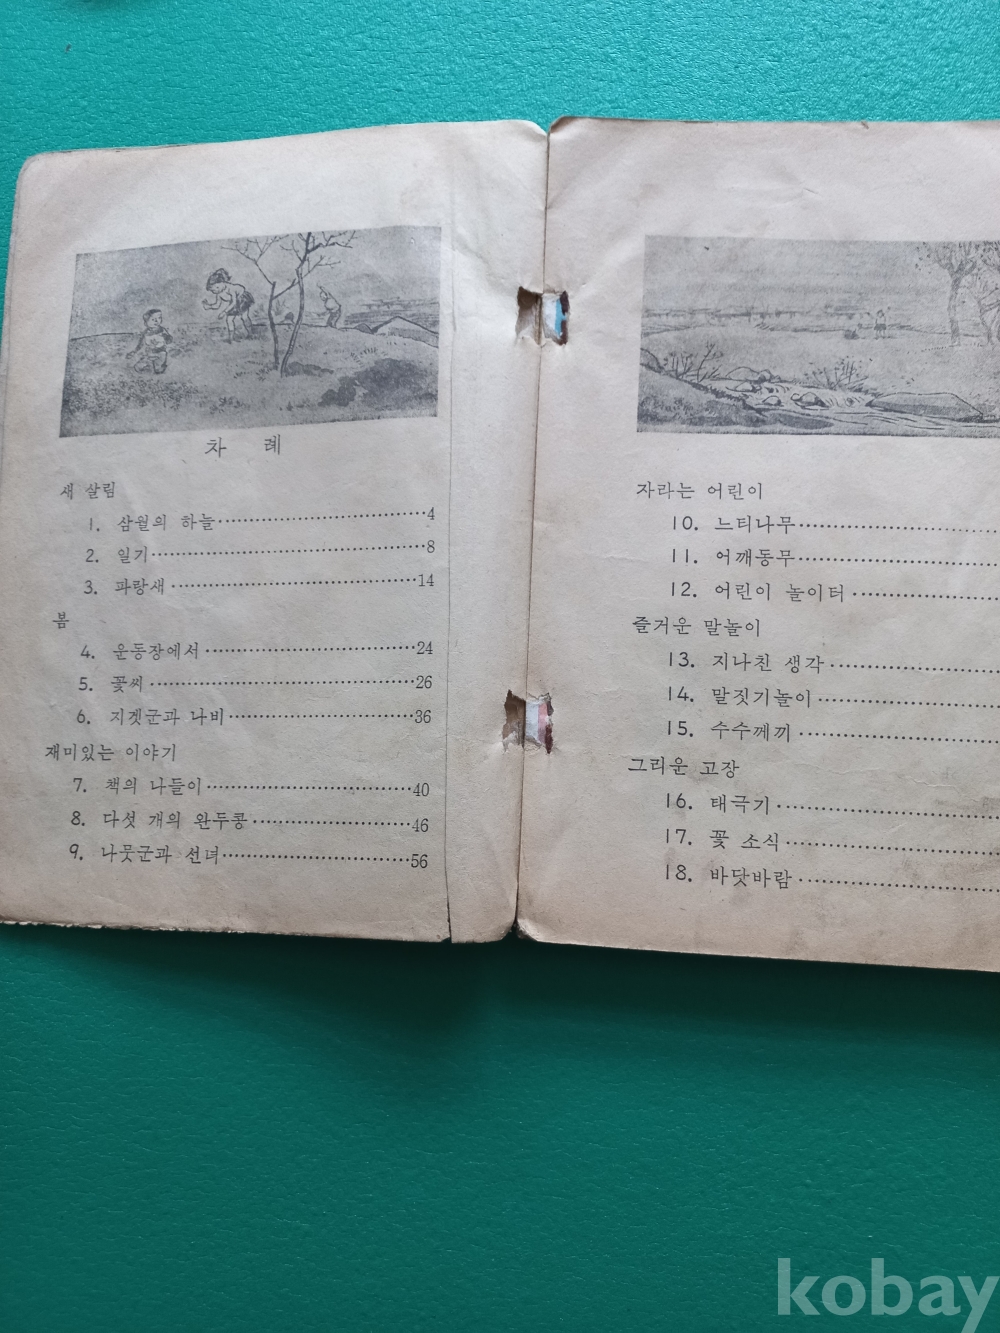 차 례
새 살림
1. 삼월의 하늘 4
2. 일기 8
3. 파랑새 14
봄
4. 운동장에서 24
5. 꽃씨 26
6. 지겟군과 나비 36
재미있는 이야기
7. 책의 나들이 40
8. 다섯 개의 완두콩 46
9. 나뭇군과 선녀 56
자라는 어린이
10. 느티나무
11. 어깨동무
12. 어린이 놀이터
즐거운 말놀이
13. 지나친 생각
14. 말짓기놀이
15. 수수께끼
그리운 고장
16. 태극기
17. 꽃 소식
18. 바닷바람
kobay